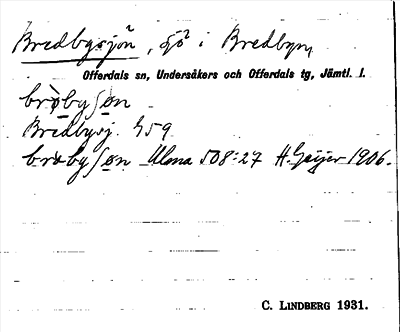 Bredbysjön, sjö i Bredbyn,
Offerdals sn, Undersåkers och Offerdals tg, Jämtl. l.
brò̤byʃo̲n
Bredbysj. G59
bròbyʃo̲n Ulma 508:27 H. Geijer 1906.
C. LINDBERG 1931.